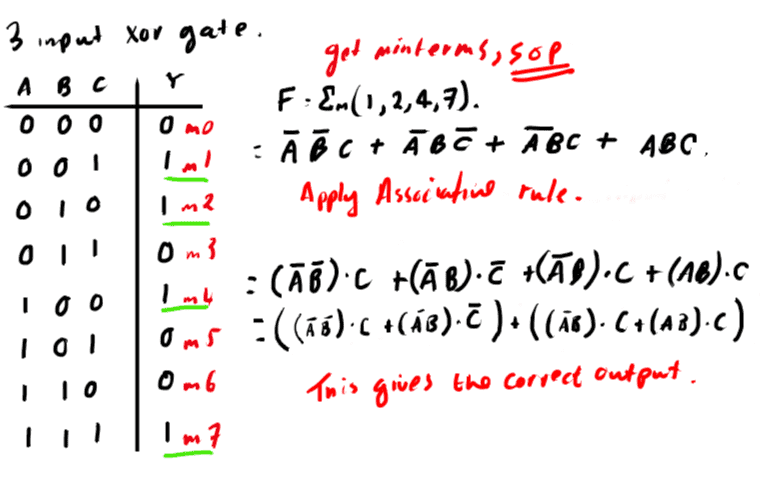 3 input xor gate.
get minterms, SOP
A B C Y
0 0 0 0 m0
0 0 1 1 m1
0 1 0 1 m2
0 1 1 0 m3
1 0 0 1 m4
1 0 1 0 m5
1 1 0 0 m6
1 1 1 1 m7
F = Σm(1,2,4,7).
= A̅ B̅ C + A̅ B C̅ + A̅B̅ C + A B C.
Apply Associative rule.
= (A̅ B̅)·C + (A̅ B)·C̅ + (A̅B̅)·C + (AB)·C
= ((A̅ B̅)·C + (A̅B)·C̅) + ((A̅B)·C + (AB)·C)
This gives the correct output.